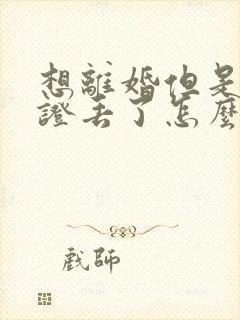 想離婚但是
證丟了怎麼
戲師